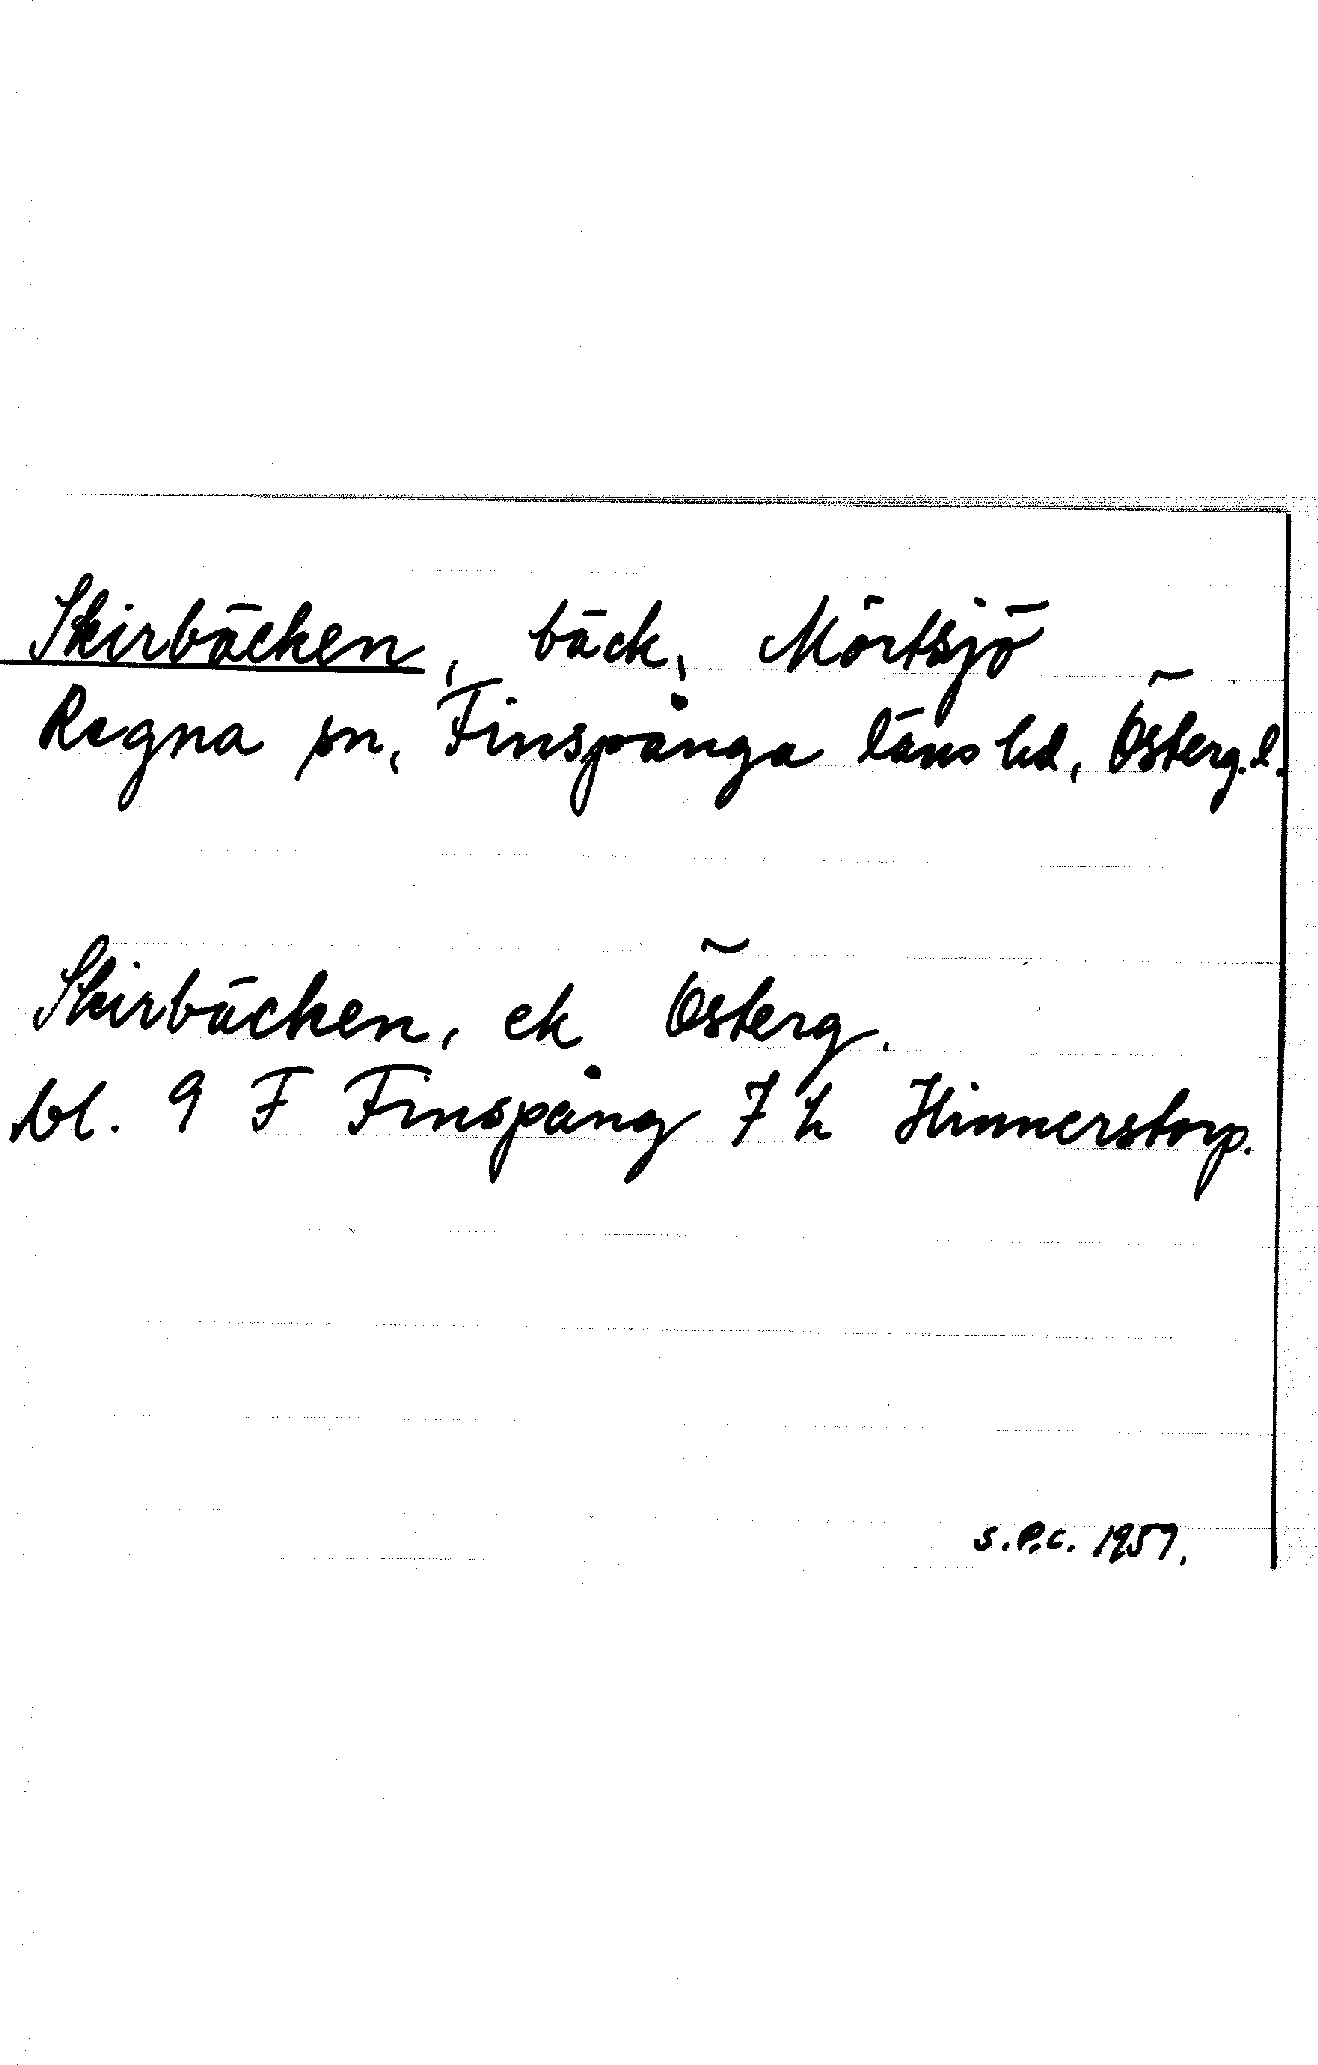 Skirbäcken, bäck, Mörtsjö
Regna sn, Finspånga läns hd, Österg. l.
Skirbäcken, ek Österg.
bl. 9 F Finspång 7 h Hinnerstorp.
S.P.C. 1957.